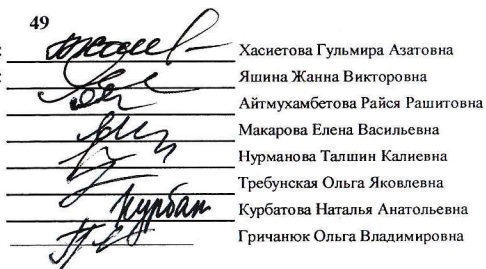 49
: Хасиетова Гульмира Азатовна
: Яшина Жанна Викторовна
Айтмухамбетова Райся Рашитовна
Макарова Елена Васильевна
Нурманова Талшин Калиевна
Требунская Ольга Яковлевна
Курбан Курбатова Наталья Анатольевна
Гричанюк Ольга Владимировна